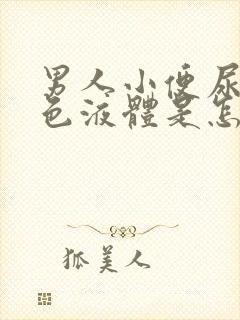 男人小便尿
色液體是怎
狐美人